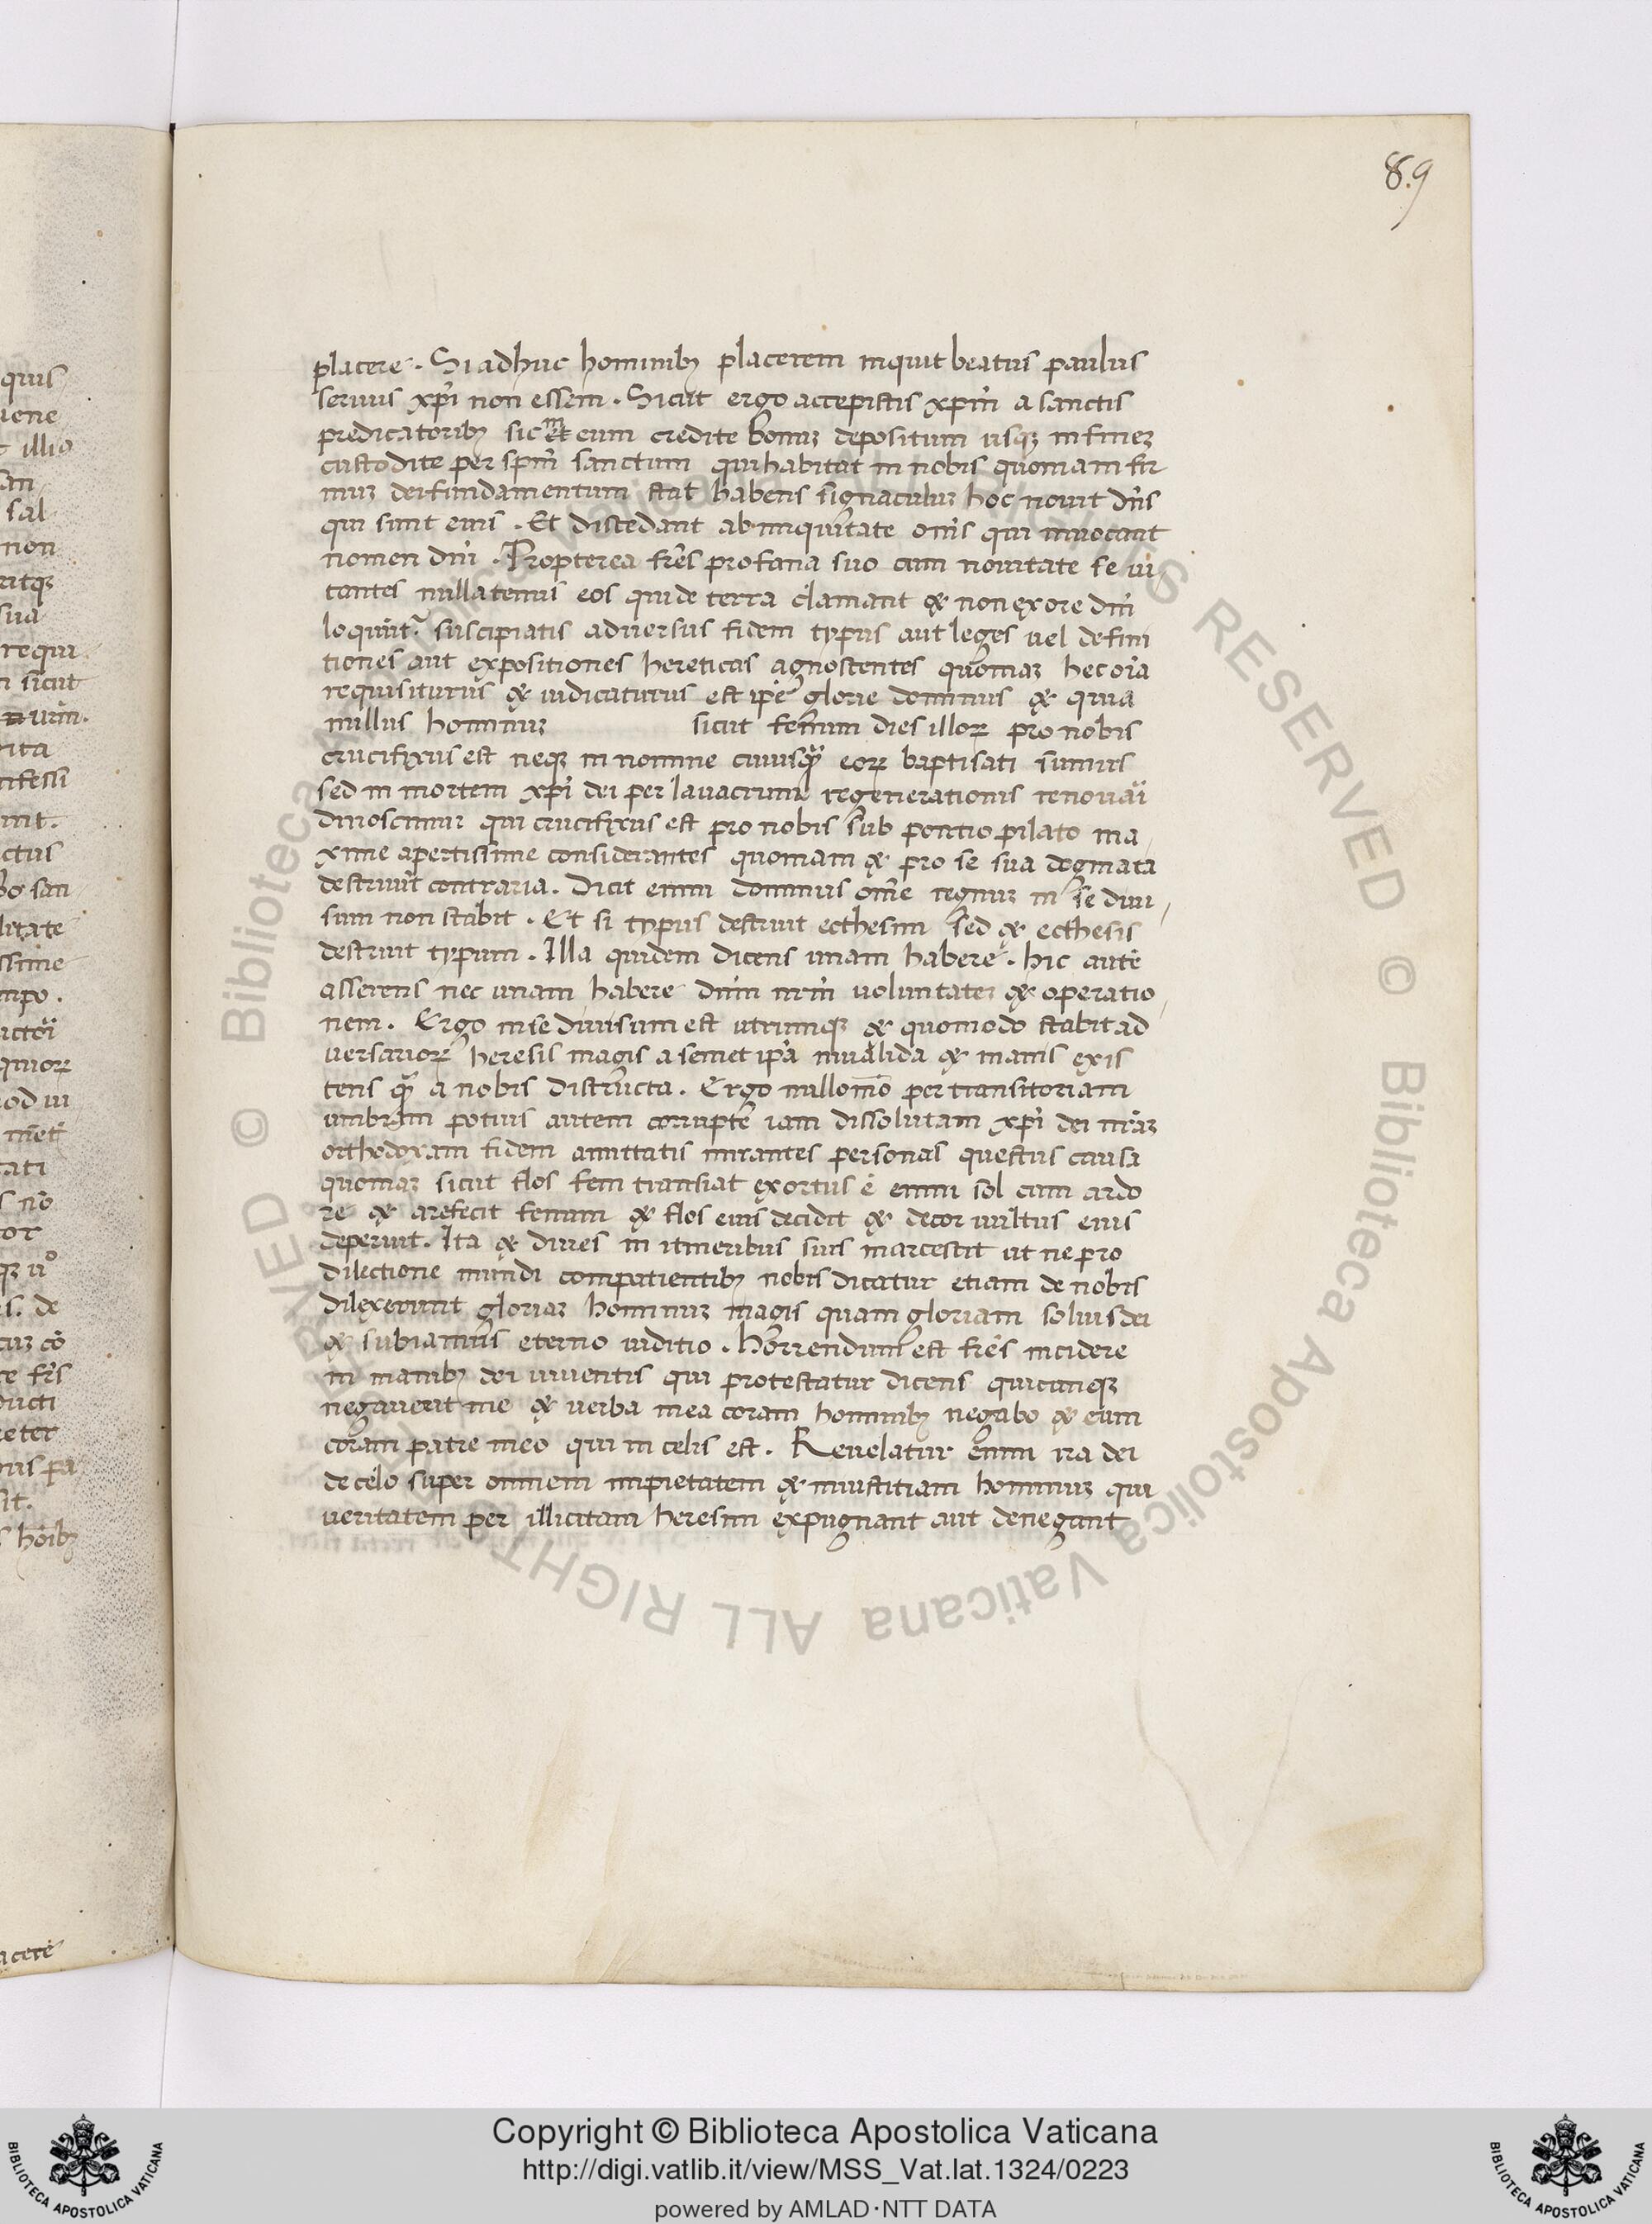 89
placere. Si adhuc hominibꝫ placerem inquit beatus paulus
servus xp̃i non essem. Sicut ergo accepistis xpm̃ a sanctis
predicatoribꝫ sic et in eum credite bonuꝫ depositum usqꝫ in fineꝫ
custodite per spm̃ sanctum qui habitat in nobis quoniam fir
muꝫ dei fundamentum stat habens signaculuꝫ hoc novit dñs
qui sunt eius. Et discedant ab iniquitate om̃s qui invocant
nomen dñi. Propterea fr̃es profana suo cum novitate se vi
tantes nullatenus eos qui de terra clamant et non ex ore dñi
loquunt᷑ suscipiatis adversus fidem typus aut leges vel defini
tiones aut expositiones hereticas agnoscentes quoniaꝫ hec oĩa
requisiturus et iudicaturus est ip̃e glorie dominus et quia
nullus hominuꝫ sicut fenum dies illoꝝ pro nobis
crucifixus est neqꝫ in nomine cuiusq̃ eoꝝ baptisati sumus
sed in mortem xp̃i dei per lavacrum regenerationis renovãi
dinoscimur qui crucifixus est pro nobis sub pontio pilato ma
xime apertissime considerantes quoniam et pro se sua dogmata
destruũt contraria. Dicit enim dominus om̃e regnuꝫ in se divi
sum non stabit. Et si typus destruit ecthesim sed et ecthesis
destruit typum. Illa quidem dicens unam habere. hic autẽ
asserens nec unam habere dñm nr̃m voluntatem et operatio
nem. Ergo in se divisum est utrumqꝫ et quomodo stabit ad
versarioꝝ heresis magis a semet ip̃a invalida et inanis exis
tens q̃ a nobis districta. Ergo nullom̃o per transitoriam
umbram potius autem corrupte iam dissolutam xp̃i dei nr̃aꝫ
orthodoxam fidem amittatis mirantes personas questus causa
quoniaꝫ sicut flos feni transiat exortus ẽ enim sol cum ardo
re et arefecit fenum et flos eius decidit et decor vultus eius
deperiit. Ita et dives in itineribus suis marcescit ut ne pro
dilectione mundi compatientibꝫ nobis dicatur etiam de nobis
dilexerunt gloriaꝫ hominuꝫ magis quam gloriam solius dei
et subiamus eterno iuditio. Horrendum est fr̃es incidere
in manibꝫ dei viventis qui protestatur dicens quicunqꝫ
negaverit me et verba mea coram hominibꝫ negabo et eum
coram patre meo qui in celis est. Revelatur enim ira dei
de celo super omnem impietatem et iniustitiam hominuꝫ qui
veritatem per illicitam heresim expugnant aut denegant
Copyright © Biblioteca Apostolica Vaticana
http://digi.vatlib.it/view/MSS_Vat.lat.1324/0223
powered by AMLAD·NTT DATA